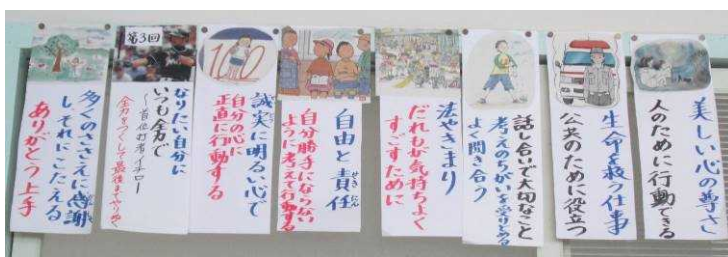 美しい心の尊さ
人のために行動できる
生命を救う仕事
公共のために役立つ
話し合いで大切なこと
考えのちがいを受けとめる
よく聞き合う
法やきまり
だれもが気持ちよく
すごすために
自由と責任
せきにん
自分勝手にならない
ように考えて行動する
100
誠実に明るい心で
自分の心に
正直に行動する
第3回
なりたい自分に
いつも全力で
～首位打者イチロー
全力をつくして最後までやりぬく
多くのささえに感謝
しそれにこたえる
ありがとう上手